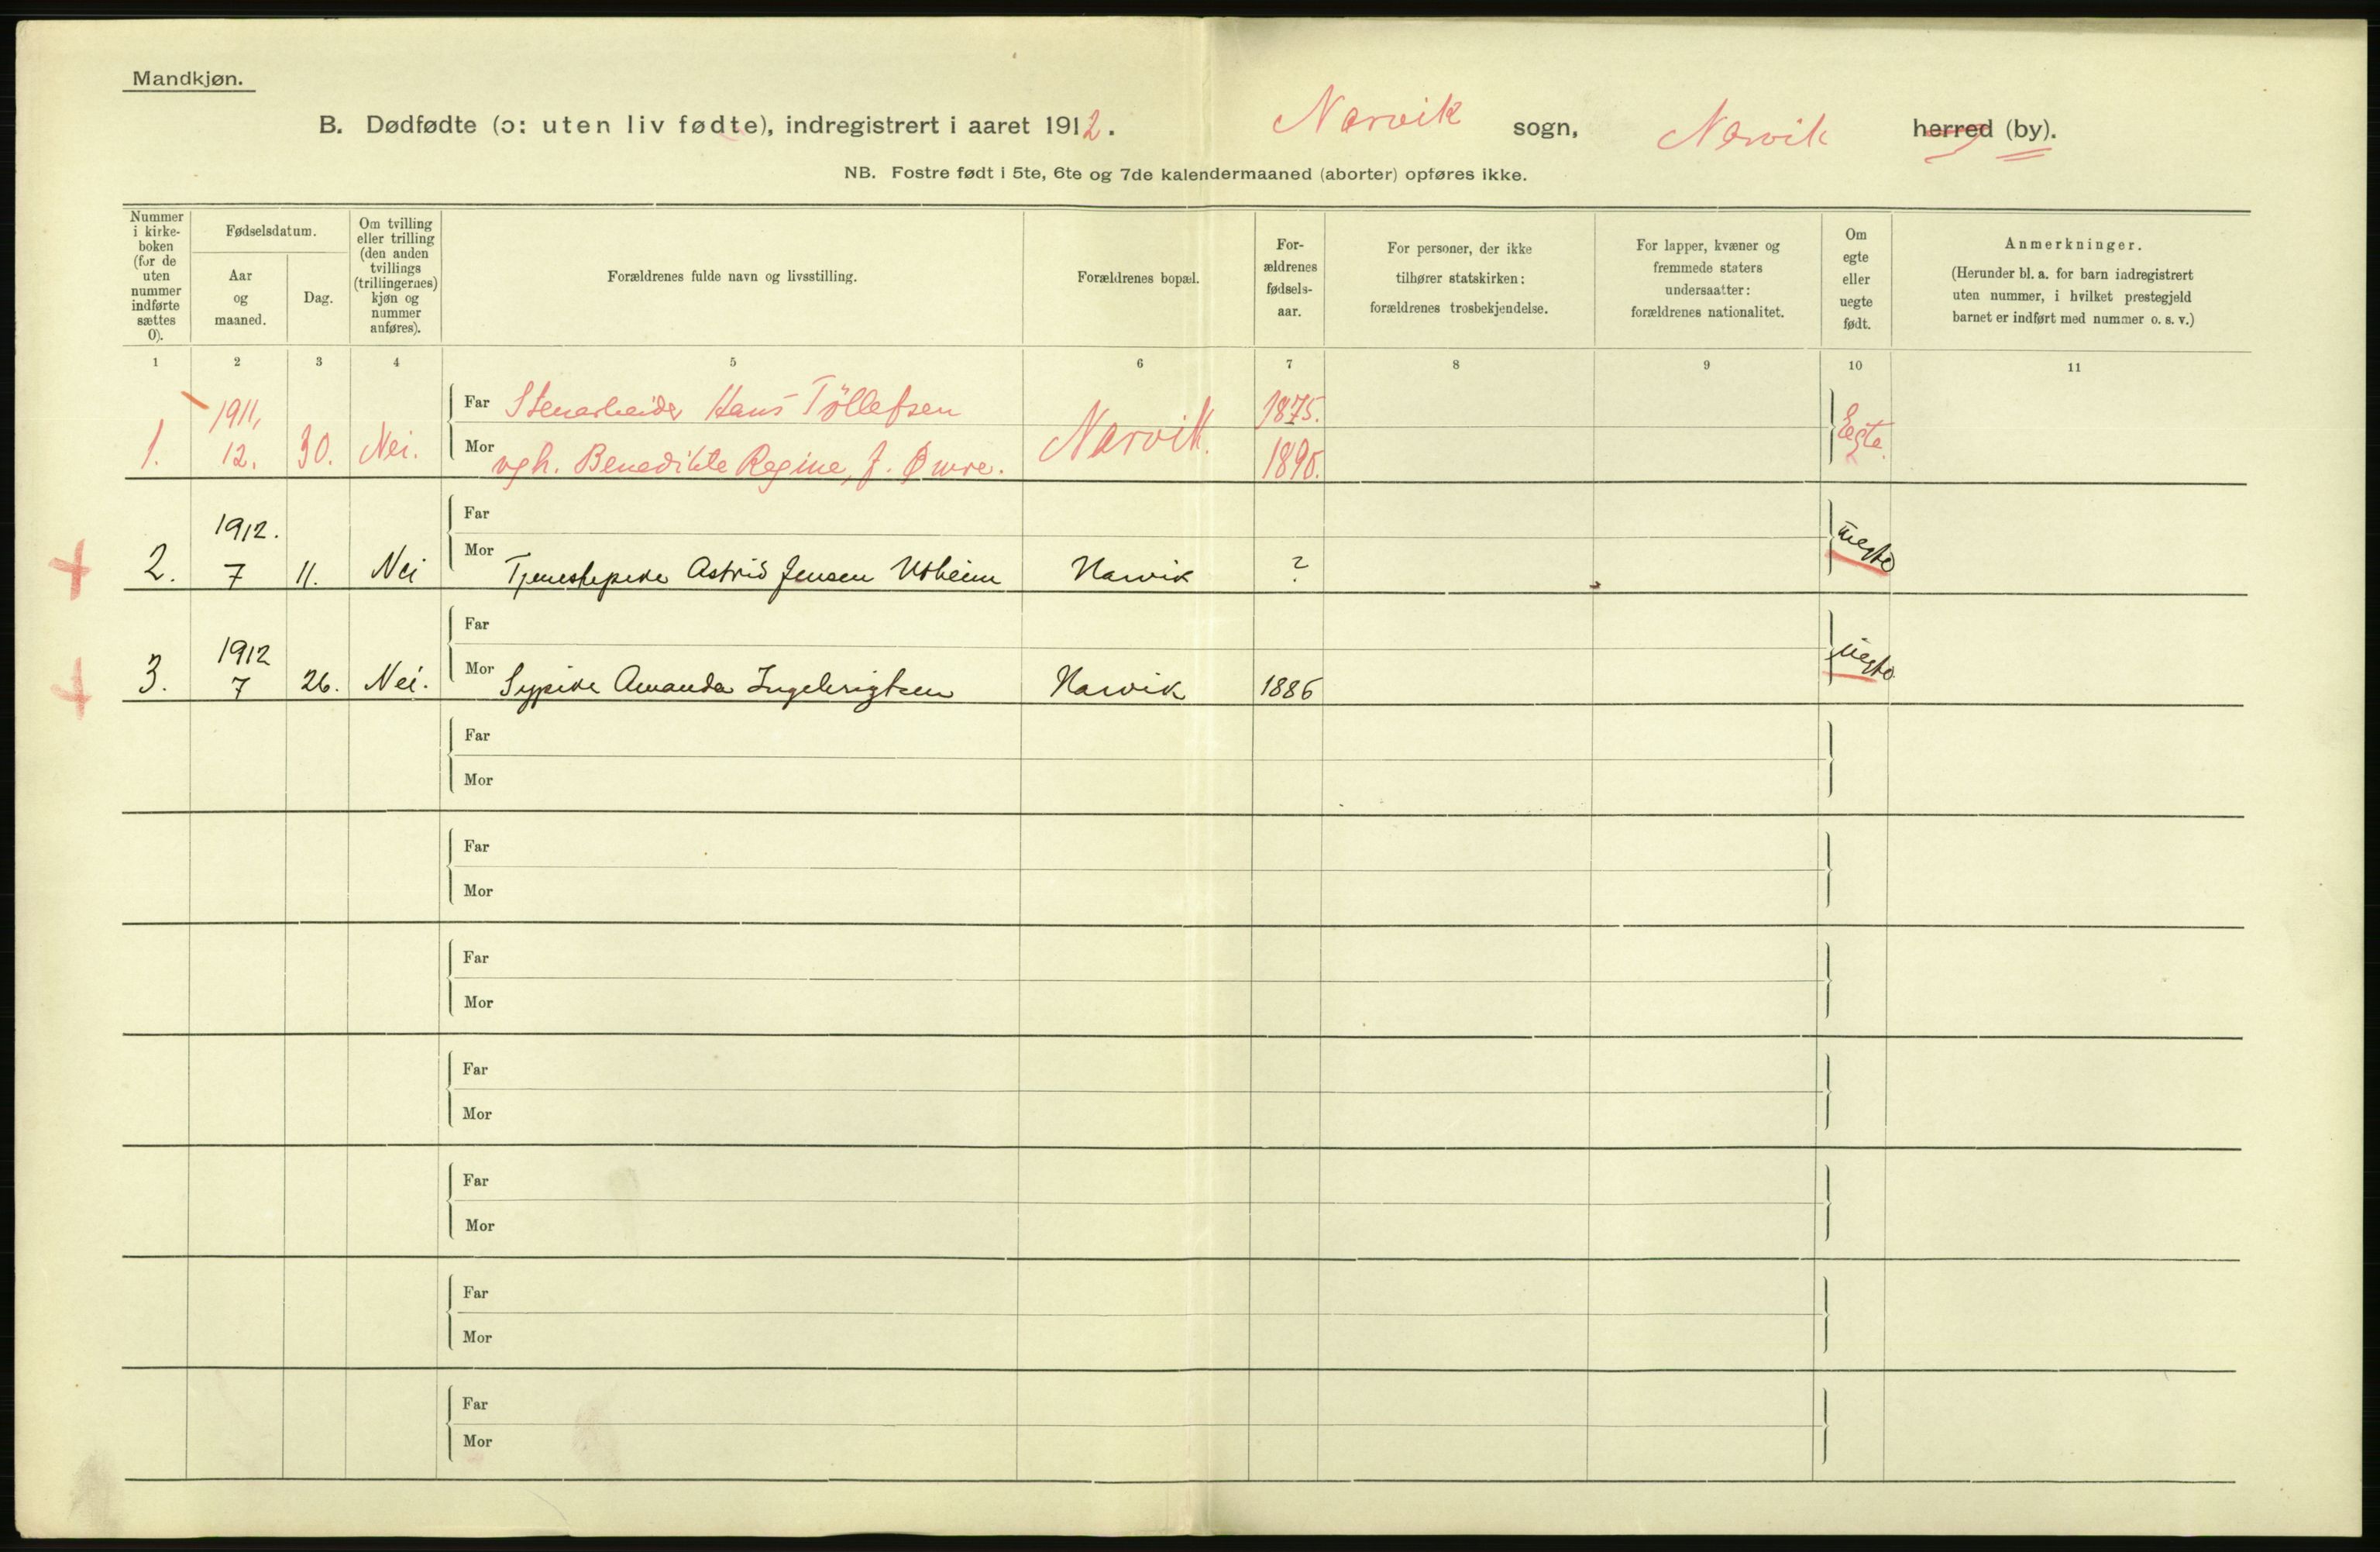 Mandkjøn.
B. Dødfødte (ɔ: uten liv fødte), indregistrert i aaret 1912. Narvik sogn, Narvik herred (by).
NB. Fostre født i 5te, 6te og 7de kalendermaaned (aborter) opføres ikke.
Nummer
i kirke-
boken
(for de
uten
nummer
indførte
sættes
0).
Fødselsdatum.
Aar
og
maaned.
Dag.
Om tvilling
eller trilling
(den anden
tvillings
(trillingernes)
kjøn og
nummer
anføres).
Forældrenes fulde navn og livsstilling.
Forældrenes bopæl.
For-
ældrenes
fødsels-
aar.
For personer, der ikke
tilhører statskirken:
forældrenes trosbekjendelse.
For lapper, kvæner og
fremmede staters
undersaatter:
forældrenes nationalitet.
Om
egte
eller
uegte
født.
Anmerkninger.
(Herunder bl. a. for barn indregistrert
uten nummer, i hvilket prestegjeld
barnet er indført med nummer o. s. v.)
1 2 3 4 5 6 7 8 9 10 11
1911, Far Stenarbeider Hans Töllefsen 1875.
1. 12. 30. Nei. Mor og h. Benedikte Regine, f. Narvik. 1890. Egte.
1912. Far
2. 7 11. Nei Mor Tjenestepike Astrid Jensen Narvik ? uegte
1912 Far
3. 7 26. Nei. Mor Sypike Amanda Ingebrigtsen Narvik 1886 uegte
Far
Mor
Far
Mor
Far
Mor
Far
Mor
Far
Mor
Far
Mor
Far
Mor